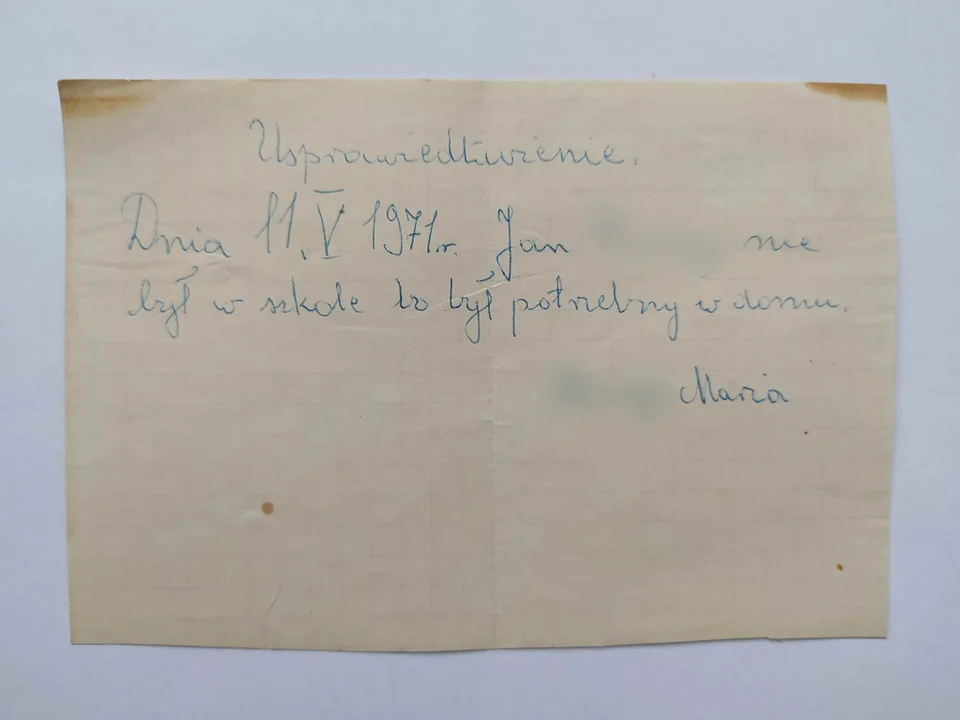 Usprawiedliwienie.
Dnia 11.V 1971r. Jan nie
był w szkole bo był potrzebny w domu.
Maria